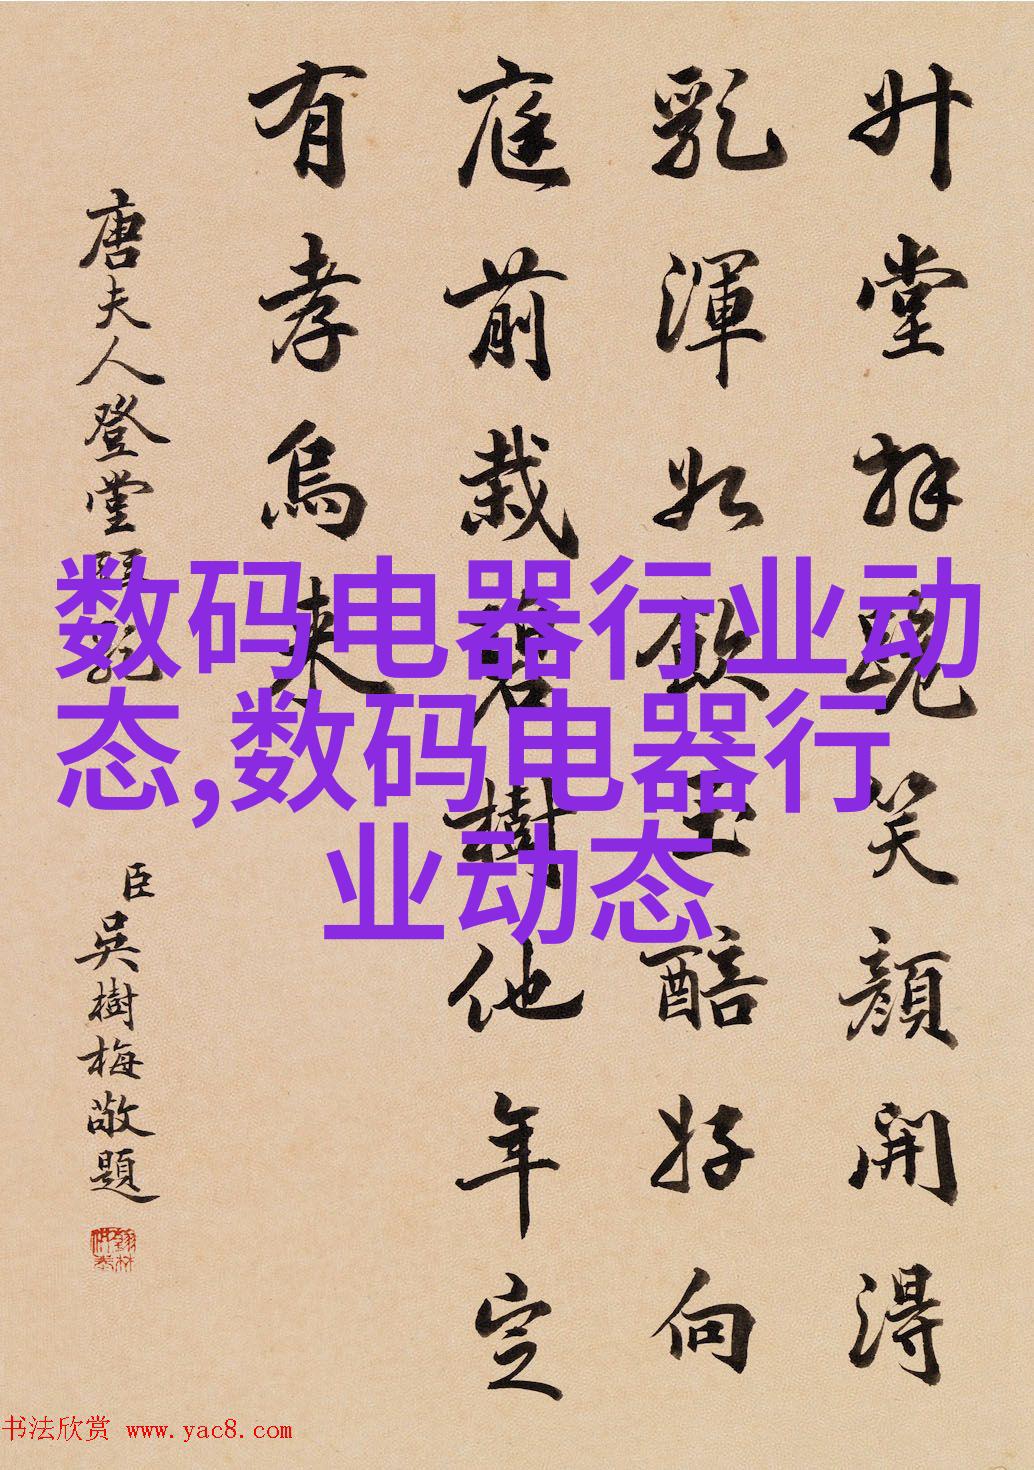 升堂拜㝃笑顔開得
乳渾如飲玉醅好向
庭前栽碧樹他年定
有孝烏來
唐夫人登堂
臣吳樹梅敬題
数码电器行业动
态,数码电器行
业动态
书法欣赏 www.yac8.com